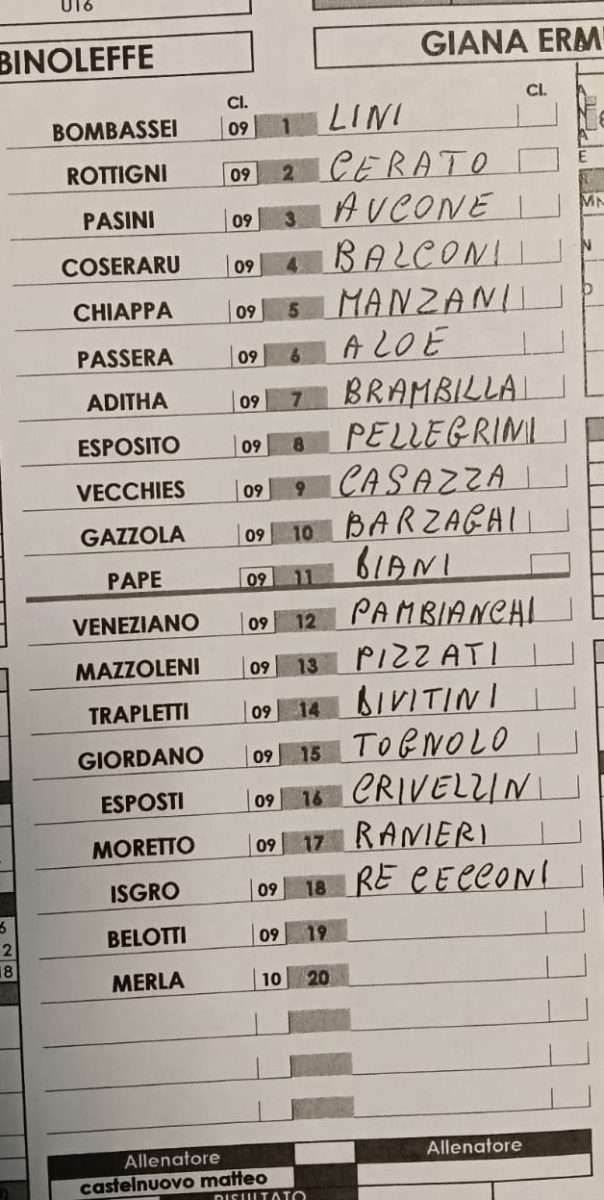 U16
BINOLEFFE GIANA ERM
Cl. Cl.
BOMBASSEI 09 1 LINI
ROTTIGNI 09 2 CERATO
PASINI 09 3 AUCONE
COSERARU 09 4 BALCONI
CHIAPPA 09 5 MANZANI
PASSERA 09 6 ALOE
ADITHA 09 7 BRAMBILLA
ESPOSITO 09 8 PELLEGRINI
VECCHIES 09 9 CASAZZA
GAZZOLA 09 10 BARZAGHI
PAPE 09 11 BIANI
VENEZIANO 09 12 PAMBIANCHI
MAZZOLENI 09 13 PIZZATI
TRAPLETTI 09 14 BIVITINI
GIORDANO 09 15 TOGNOLO
ESPOSTI 09 16 CRIVELLIN
MORETTO 09 17 RANIERI
ISGRO 09 18 RE CECCONI
BELOTTI 09 19
MERLA 10 20
Allenatore Allenatore
castelnuovo matteo
RISULTATO